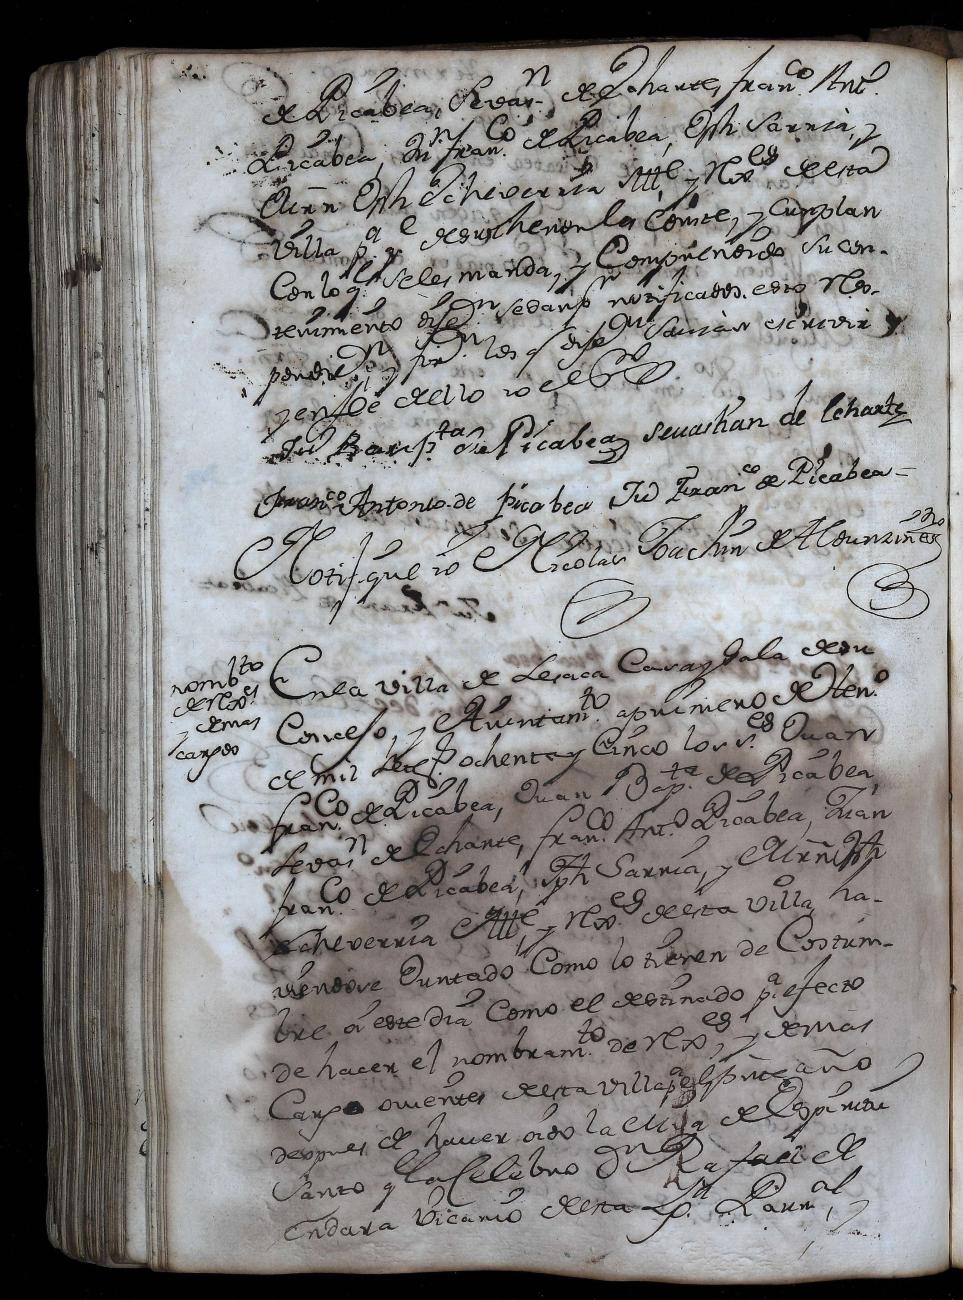 de Picabea, Sevan.n de Echarte, fran.co Ant.o
Picabea, Ju.n fran.co de Picabea, Jph Sarria, y
Mrn Jph Echeverria Alll.e y Rex.es de esta
villa p.a q.e de su thenor les Conste, y Cumplan
Con lo q.e se les manda, y Comprendido su con-
tenimiento dixe.n se dan p.r notificados. esto Res-
pondie.n y firm.n los q.e dixe.n savian escrivir
y en fee de ello io el ess.no
Ju.n Bap.ta de Picabea sevastian de Echarte
Fran.co Antonio de picabea Ju.n Fran.co de Picabea
Notifiqué io Nicolas Joachin de Aldunzin ess.no
nombto
de Rex.es
y demas
cargos
En la villa de Lesaca Cassa y Sala de su
Concejo, y Aiuntam.to a primero de Hen.o
de mil sett.s ochenta y Cinco los ss.es Juan
fran.co de Picabea, Juan Bap.ta de Picabea,
Sevan.n de Echarte, fran.co Ant.o Picabea, Juan
fran.co de Picabea, Jph Sarria, y Mrn Jph
Echeverria Alll.e y Rex.es de esta villa ha-
viendose Juntado Como lo tienen de Costum-
bre en este dia Como el destinado p.a efecto
de hacer el nombram.to de Rex.es y demas
Cargo ouientes de esta villa p.a el pnte año
despues de haver oido la Misa de Espiritu
Santo q.e la Celebro D.n Rafael de
Endara Vicario de esta Sta. p. Parr.al,